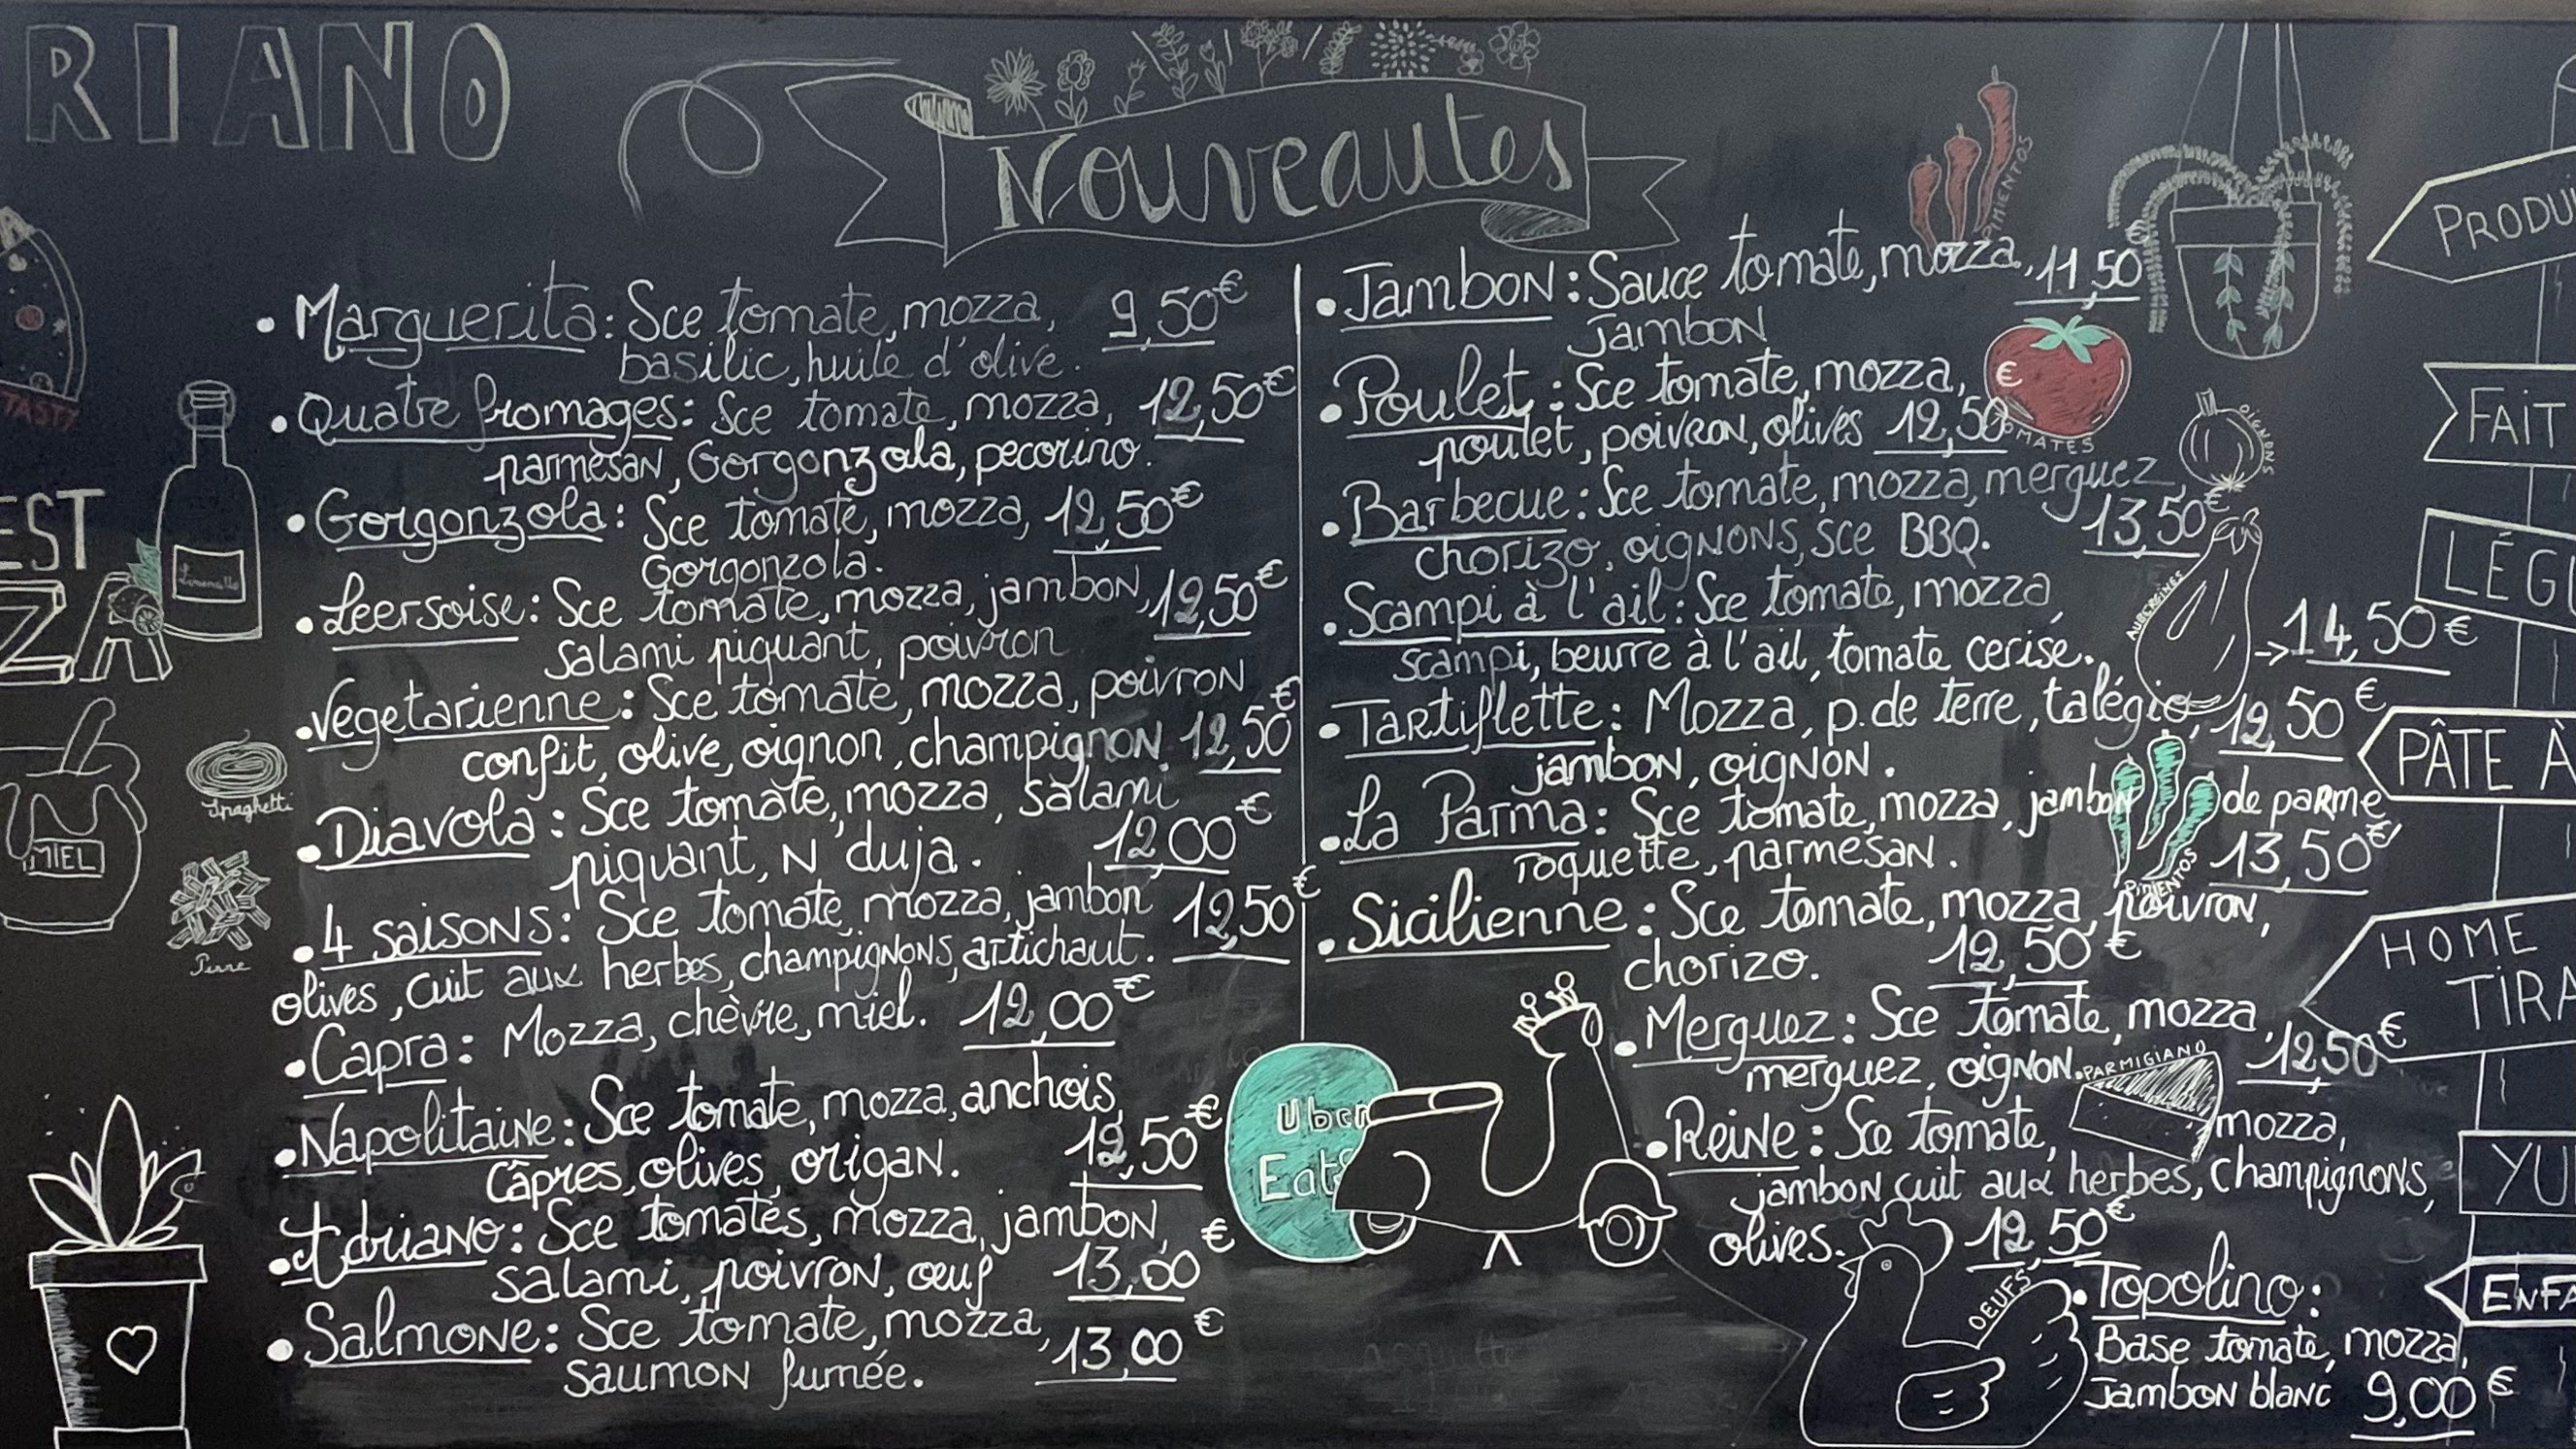 RIANO
Nouveautes
TASTY
EST
ZA
Limoncello
MIEL
Spaghetti
Penne
• Marguerita: Sce tomate, mozza, 9,50€
basilic, huile d'olive.
• Quatre fromages: Sce tomate, mozza, 12,50€
parmesan, Gorgonzola, pecorino.
• Gorgonzola: Sce tomate, mozza, 12,50€
Gorgonzola.
• Leersoise: Sce tomate, mozza, jambon, 12,50€
salami piquant, poivron
• Vegetarienne: Sce tomate, mozza, poivron
confit, olive, oignon, champignon. 12,50€
• Diavola: Sce tomate, mozza, salami
piquant, N'duja. 12,00€
• 4 saisons: Sce tomate, mozza, jambon 12,50€
olives, cuit aux herbes, champignons, artichaut.
• Capra: Mozza, chèvre, miel. 12,00€
• Napolitaine: Sce tomate, mozza, anchois,
Câpres, olives, origan. 12,50€
• Adriano: Sce tomates, mozza, jambon,
salami, poivron, œuf 13,00€
• Salmone: Sce tomate, mozza, 13,00€
saumon fumée.
• Jambon: Sauce tomate, mozza, 11,50€
Jambon
• Poulet: Sce tomate, mozza,
poulet, poivron, olives 12,50€
• Barbecue: Sce tomate, mozza, merguez,
chorizo, oignons, sce BBQ. 13,50€
• Scampi à l'ail: Sce tomate, mozza,
scampi, beurre à l'ail, tomate cerise. → 14,50€
• Tartiflette: Mozza, p. de terre, talégio, 12,50€
jambon, oignon.
• La Parma: Sce tomate, mozza, jambon de parme
roquette, parmesan. 13,50€
• Sicilienne: Sce tomate, mozza, poivron,
chorizo. 12,50€
• Merguez: Sce tomate, mozza,
merguez, oignon. 12,50€
• Reine: Sce tomate, mozza,
jambon cuit aux herbes, champignons,
olives. 12,50€
• Topolino:
Base tomate, mozza,
Jambon blanc 9,00€
PIMIENTOS
TOMATES
OIGNONS
AUBERGINES
PIMIENTOS
PARMIGIANO
OEUFS
Uber
Eats
PRODU
FAIT
LÉG
PÂTE À
HOME
TIRA
YU
ENFA